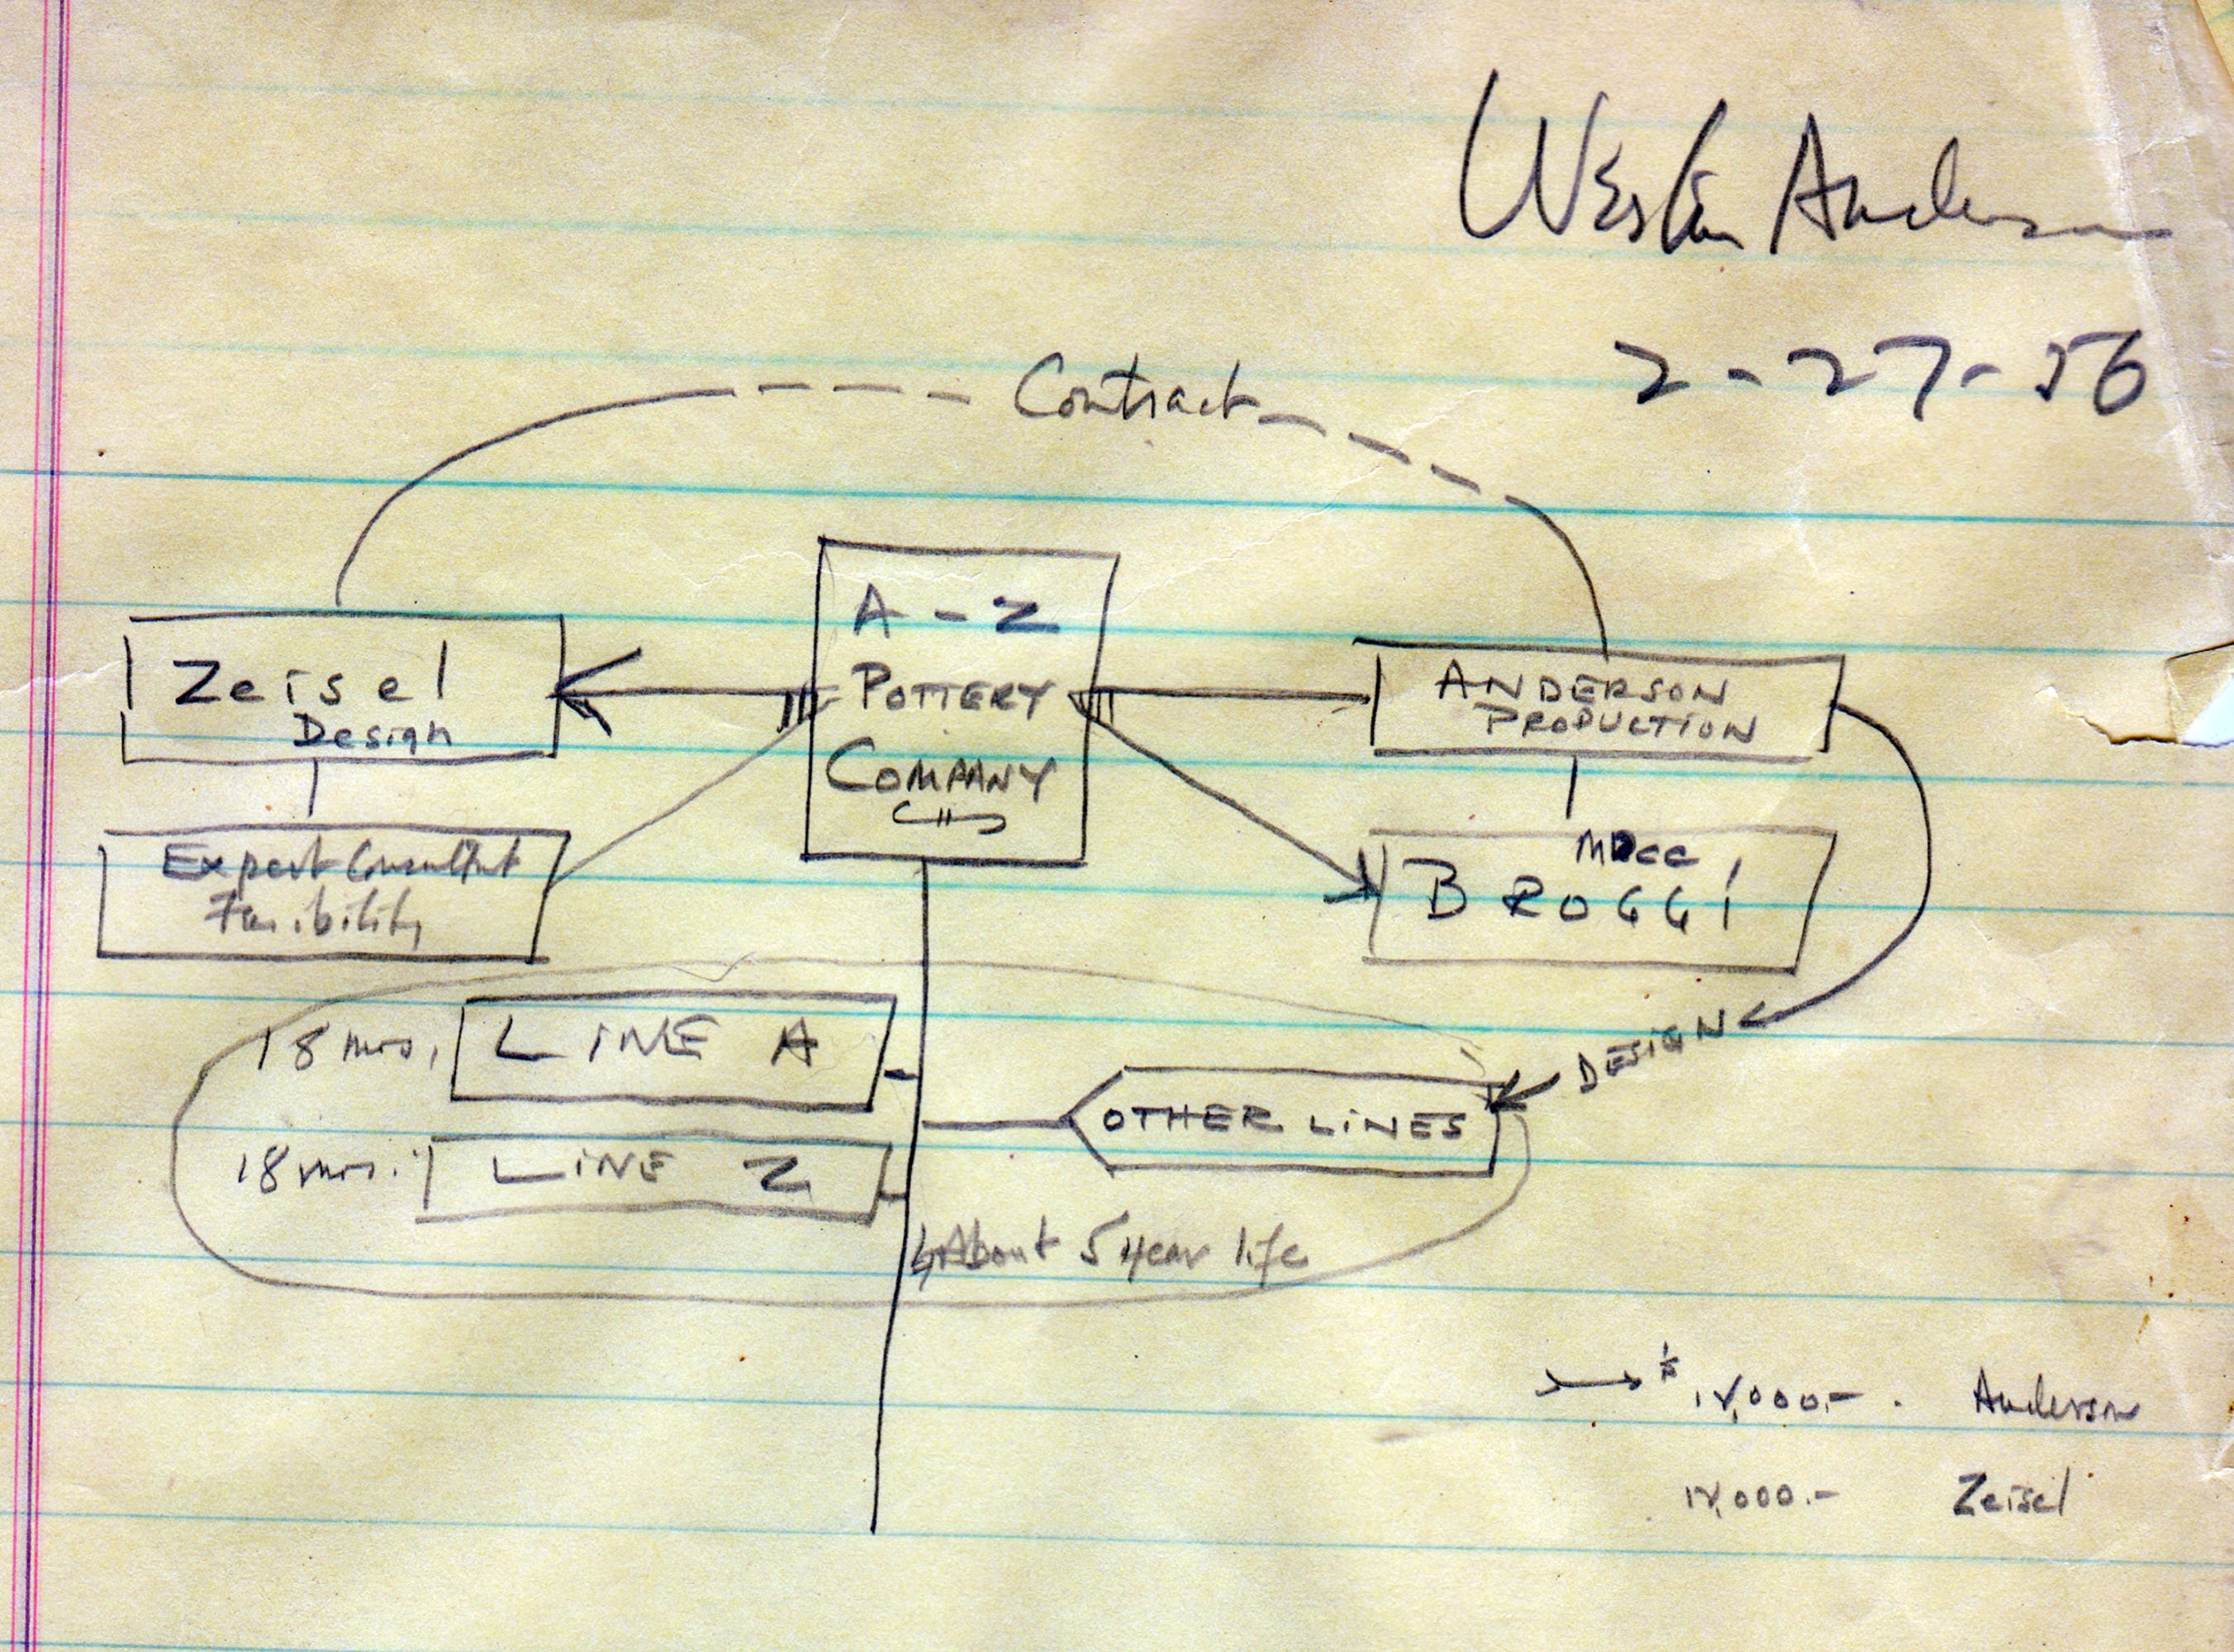 Weslin Anderson
2-27-56
Contract
A - Z
POTTERY
COMPANY
Zeisel
Design
ANDERSON
PRODUCTION
Expert Consultant
BROGGI
18 mos.
LINE A
DESIGN
OTHER LINES
18 mos.
LINE Z
About 5 year life
Anderson
Zeisel